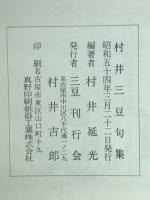 村井三豆句集
昭和五十四年三月二十二日発行
編著者 村井延光
発行者 三豆刊行会
名古屋市中川区八千代通一ノ二九
村井吉郎
印刷 名古屋市東区山口町十九
真野印刷紙器工業株式会社